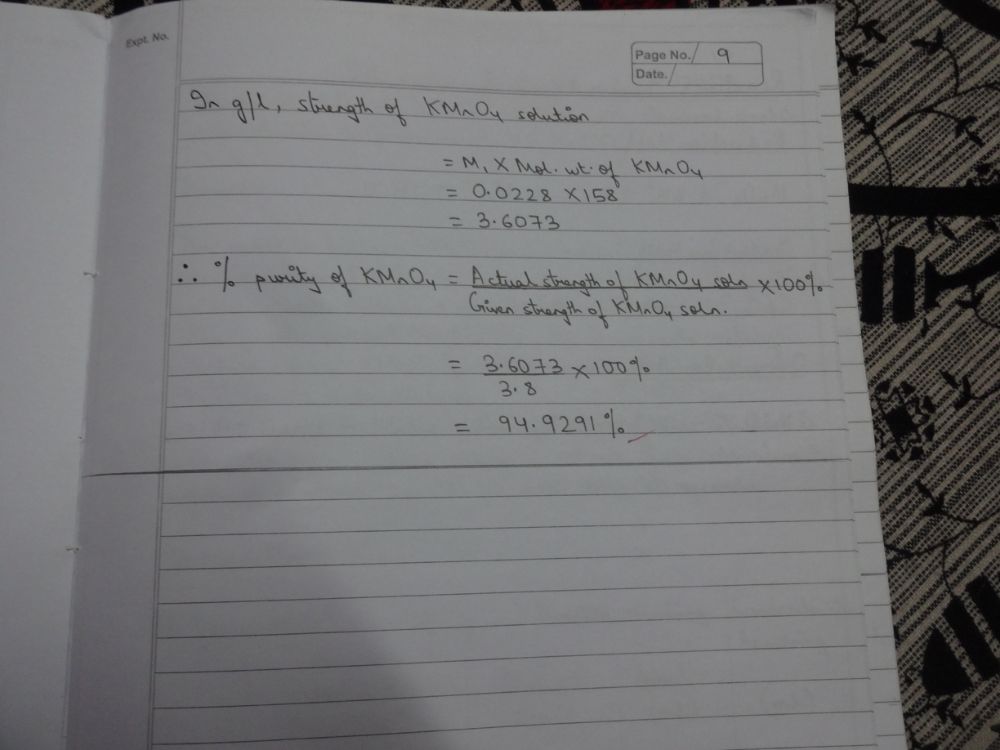 Expt. No.
Page No. 9
Date.
In g/l, strength of KMnO4 solution
= M1 × Mol. wt. of KMnO4
= 0.0228 × 158
= 3.6073
∴ % purity of KMnO4 = Actual strength of KMnO4 soln × 100%
Given strength of KMnO4 soln.
= 3.6073 × 100%
3.8
= 94.9291%